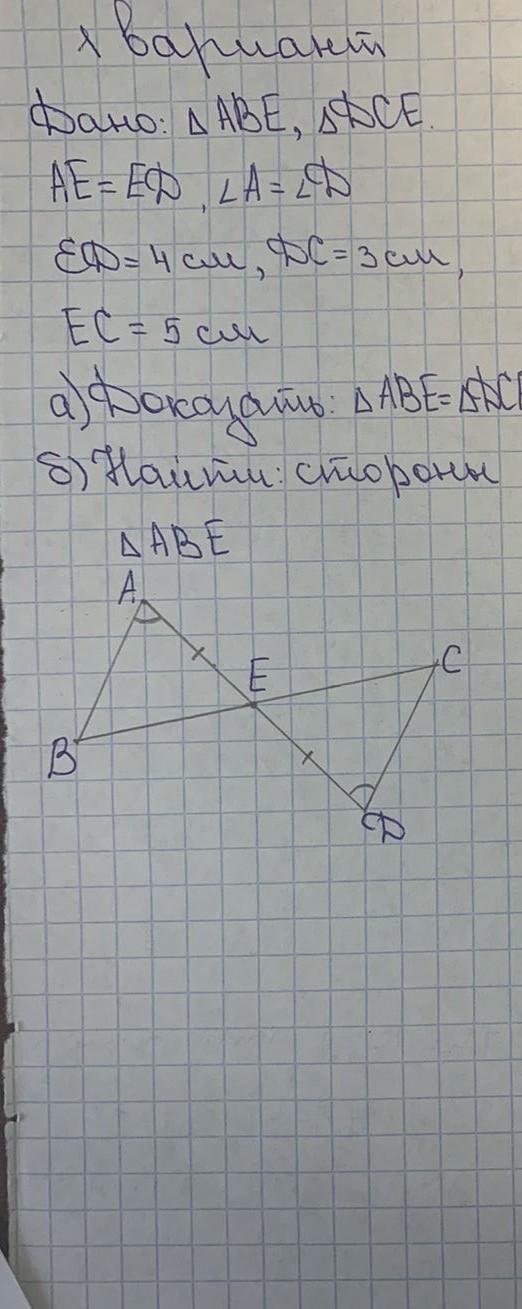 1 вариант
Дано: △ABE, △DCE.
AE=ED, ∠A=∠D
ED=4 см, DC=3 см,
EC=5 см
а) Доказать: △ABE=△DCE
б) Найти: стороны
△ABE
A
E
C
B
D